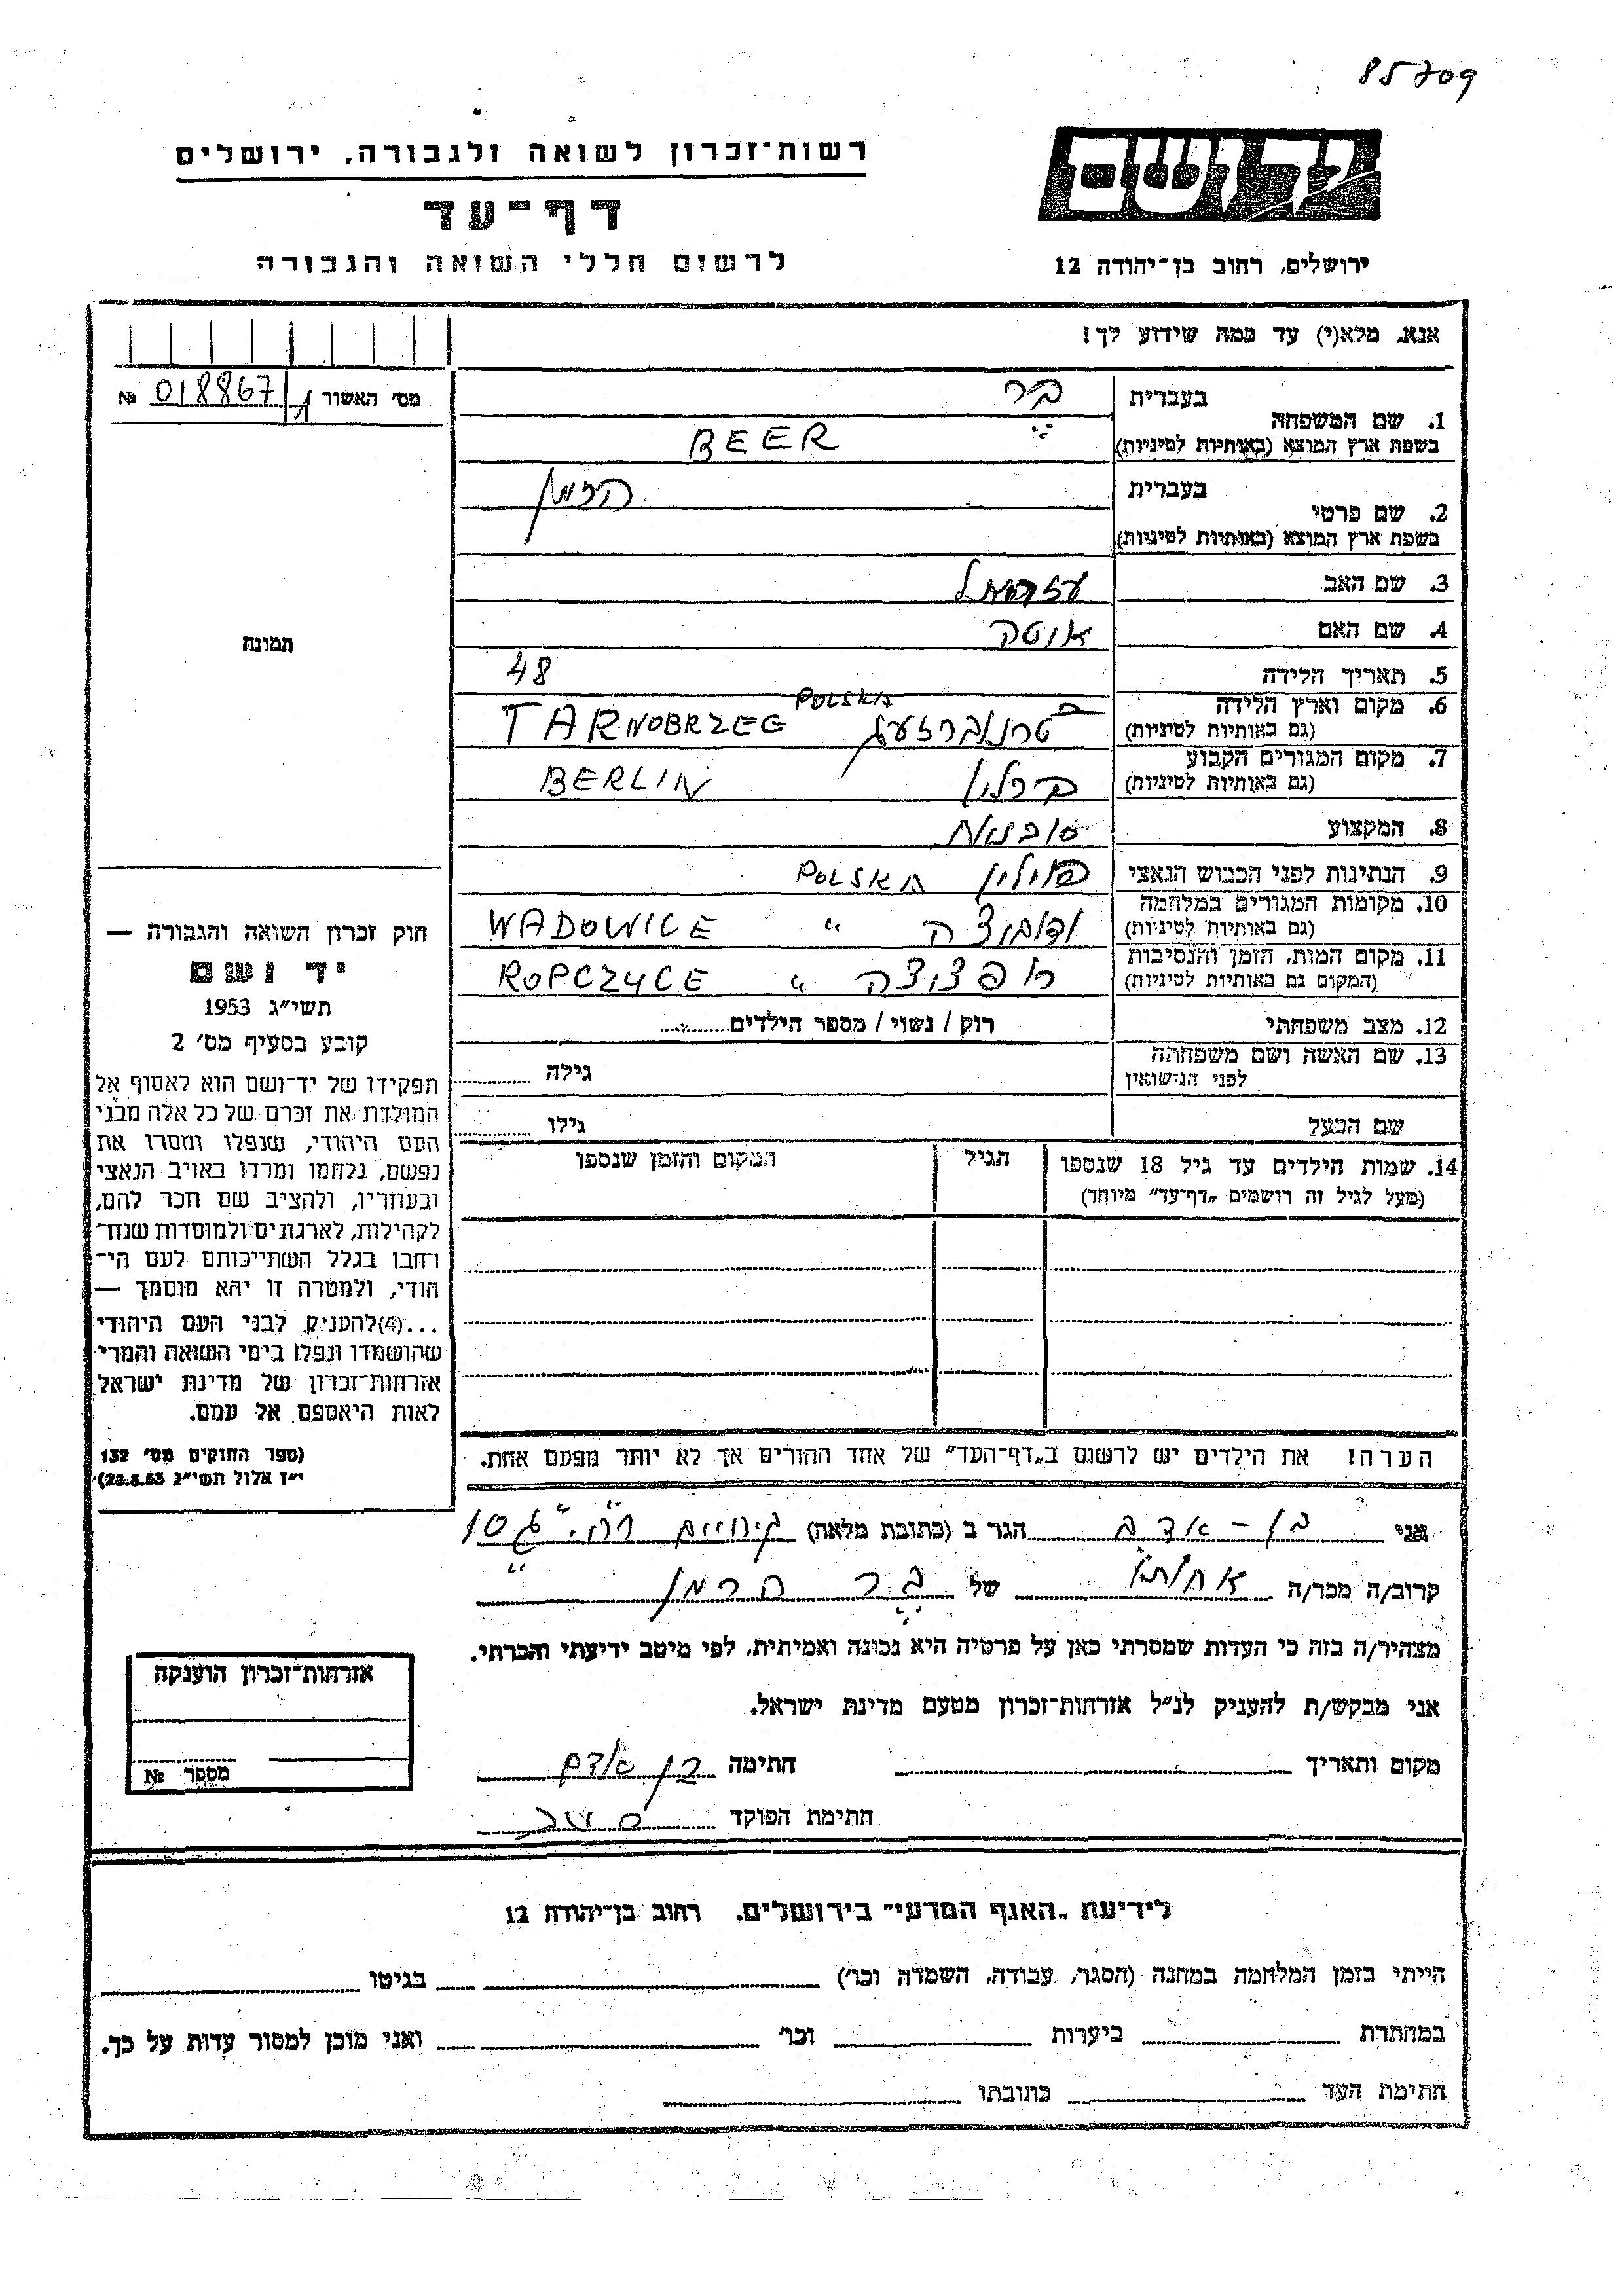 85709
רשות־זכרון לשואה ולגבורה, ירושלים
יד ושם
דף־עד
לרשום חללי השואה והגבורה
ירושלים, רחוב בן־יהודה 12
אנא, מלא(י) עד כמה שידוע לך!
מס' האשור № 018867
1. שם המשפחה בעברית בר
בשפת ארץ המוצא (באותיות לטיניות) BEER
2. שם פרטי בעברית הרמן
בשפת ארץ המוצא (באותיות לטיניות)
3. שם האב
4. שם האם
5. תאריך הלידה 48
6. מקום וארץ הלידה (גם באותיות לטיניות) TARNOBRZEG POLSKA
7. מקום המגורים הקבוע (גם באותיות לטיניות) ברלין BERLIN
8. המקצוע
9. הנתינות לפני הכבוש הנאצי פולין POLSKA
10. מקומות המגורים במלחמה (גם באותיות לטיניות) " WADOWICE
11. מקום המות, הזמן והנסיבות (המקום גם באותיות לטיניות) רופצוצה " ROPCZYCE
12. מצב משפחתי רווק / נשוי / מספר הילדים
13. שם האשה ושם משפחתה לפני הנישואין גילה
שם הבעל גילו
14. שמות הילדים עד גיל 18 שנספו הגיל המקום והזמן שנספו
(מעל לגיל זה רושמים „דף־עד" מיוחד)
תמונה
חוק זכרון השואה והגבורה —
יד ושם
תשי"ג 1953
קובע בסעיף מס' 2
תפקידו של יד־ושם הוא לאסוף אל
המולדת את זכרם של כל אלה מבני
העם היהודי, שנפלו ומסרו את
נפשם, נלחמו ומרדו באויב הנאצי
ובעוזריו, ולהציב שם וזכר להם,
לקהילות, לארגונים ולמוסדות שנח־
רחבו בגלל השתייכותם לעם הי־
הודי, ולמטרה זו יהא מוסמך —
...(4)להעניק לבני העם היהודי
שהושמדו ונפלו בימי השואה והמרי
אזרחות־זכרון של מדינת ישראל
לאות היאספם אל עמם.
(ספר החוקים מס' 132
י"ז אלול תשי"ג 28.8.53)
הערה! את הילדים יש לרשום ב„דף־העד" של אחד ההורים אך לא יותר מפעם אחת.
אני בן־אדם הגר ב (כתובת מלאה) 10
קרוב/ה מכר/ה של בר הרמן
מצהיר/ה בזה כי העדות שמסרתי כאן על פרטיה היא נכונה ואמיתית, לפי מיטב ידיעתי והכרתי.
אני מבקש/ת להעניק לנ"ל אזרחות־זכרון מטעם מדינת ישראל.
מקום ותאריך חתימה בן אדם
חתימת הפוקד
אזרחות־זכרון הוענקה
מספר №
לידיעת „האגף המדעי" בירושלים, רחוב בן־יהודה 12
הייתי בזמן המלחמה במחנה (הסגר, עבודה, השמדה וכו') בגיטו
במחתרת ביערות וכו' ואני מוכן למסור עדות על כך.
חתימת העד כתובתו